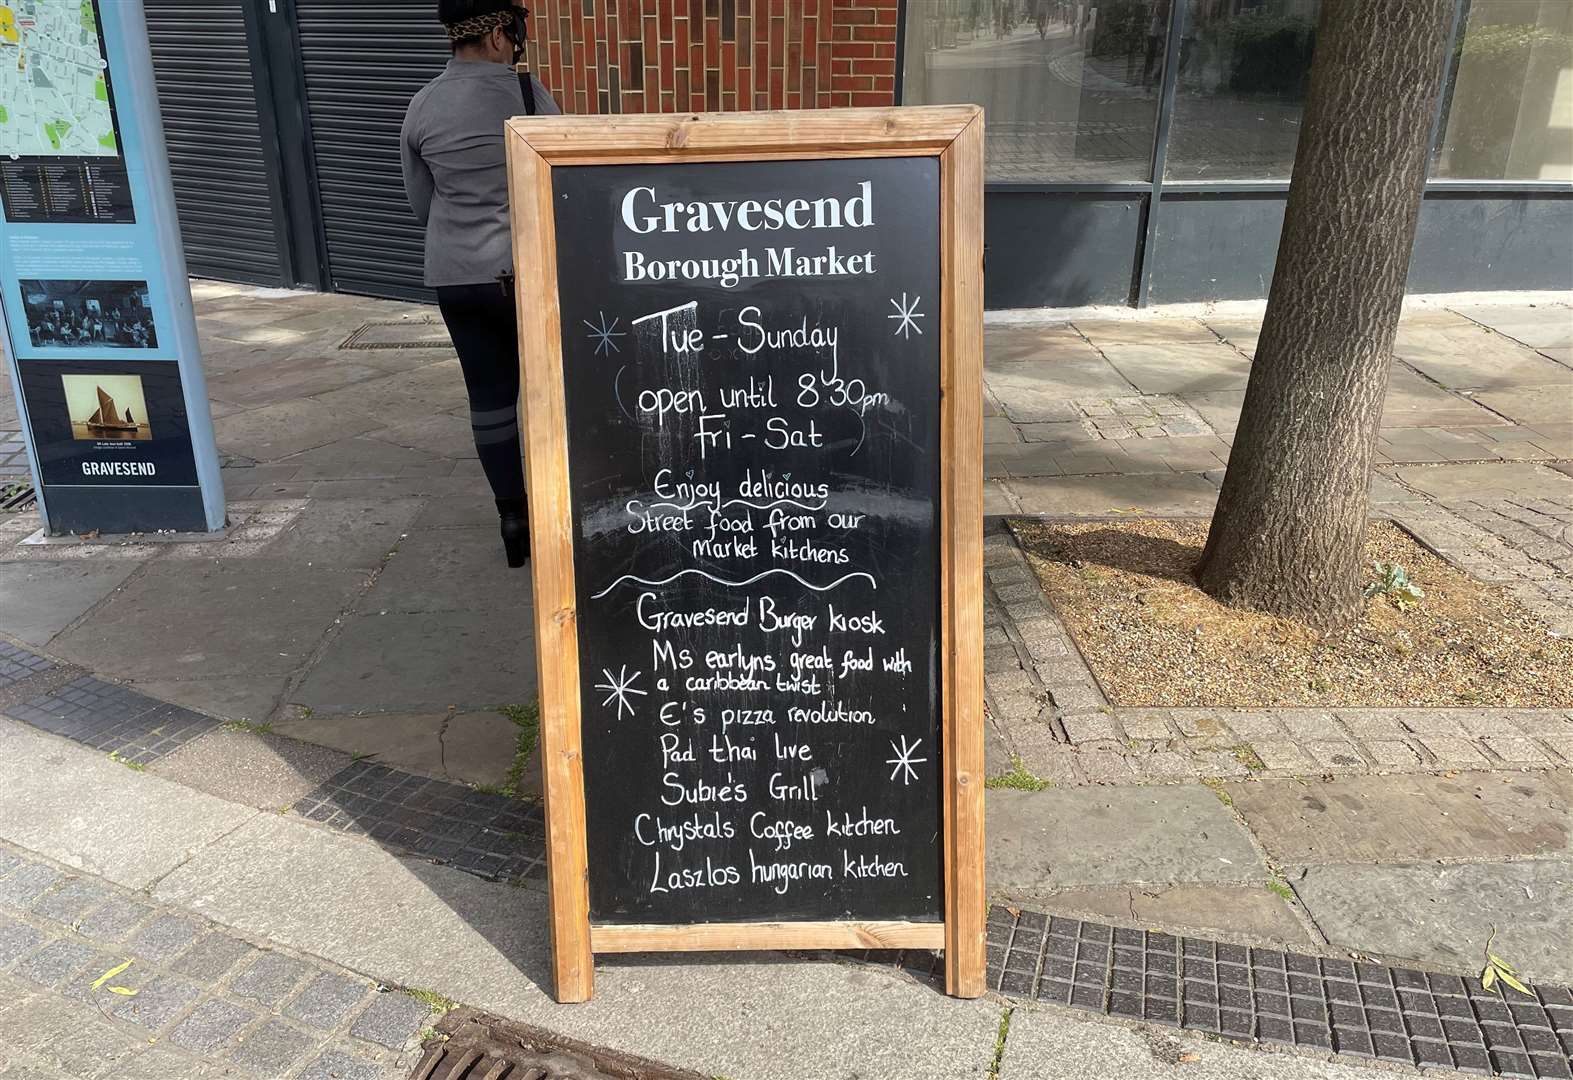 Gravesend
Borough Market
Tue - Sunday
(open until 8 30pm
Fri - Sat)
Enjoy delicious
Street food from our
Market kitchens
Gravesend Burger kiosk
Ms earlyns great food with
a caribbean twist
E's pizza revolution
Pad thai live
Subie's Grill
Chrystals Coffee kitchen
Laszlos hungarian kitchen
GRAVESEND